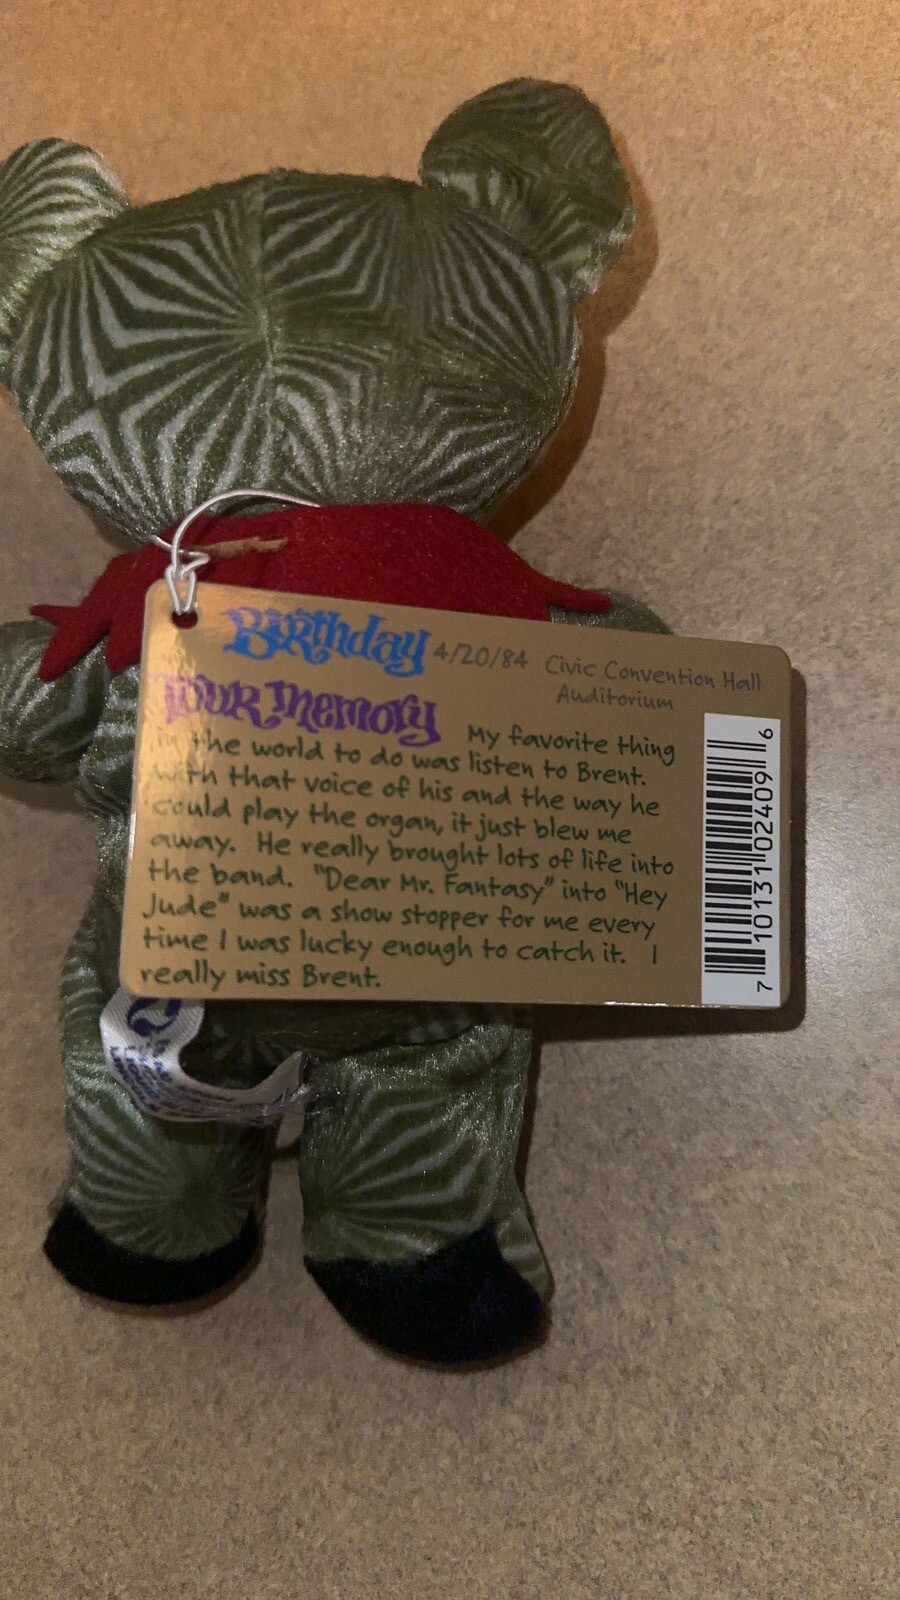 Birthday 4/20/84 Civic Convention Hall
Auditorium
Tour Memory My favorite thing
in the world to do was listen to Brent.
With that voice of his and the way he
could play the organ, it just blew me
away. He really brought lots of life into
the band. "Dear Mr. Fantasy" into "Hey
Jude" was a show stopper for me every
time I was lucky enough to catch it. I
really miss Brent.
7 10131 02409 6